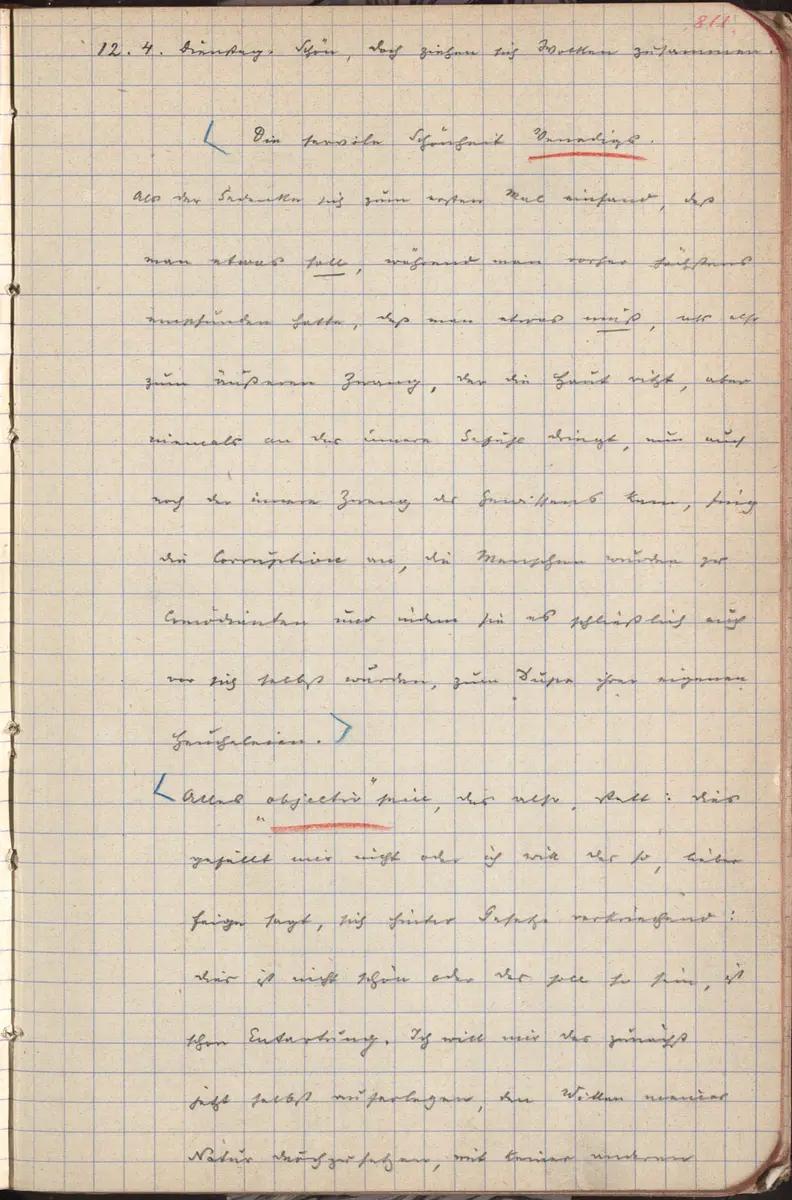 811.
12. 4. Dienstag. Schön, doch ziehen sich Wolken zusammen.
Die servile Schönheit Venedigs.
Als der Gedanke sich zum ersten Mal einfand, daß
man etwas soll, während man vorher höchstens
empfunden hatte, daß man etwas muß, als also
zum äußeren Zwang, der die Haut ritzt, aber
niemals an das innere Gefühl dringt, nun auch
noch der innere Zwang des Gewissens kam, fing
die Corruption an, die Menschen wurden zu
Comödianten und indem sie es schließlich auch
vor sich selbst wurden, zum Dupe ihrer eigenen
Heucheleien.
Alles „objectiv“ sein, das also, statt: dies
gefällt mir nicht oder ich will das so, lieber
feige sagt, sich hinter Gesetze verkriechend:
dies ist nicht schön oder das soll so sein, ist
schon Entartung. Ich will mir das zunächst
jetzt selbst auferlegen, den Willen meiner
Natur durchzusetzen, mit keiner anderen